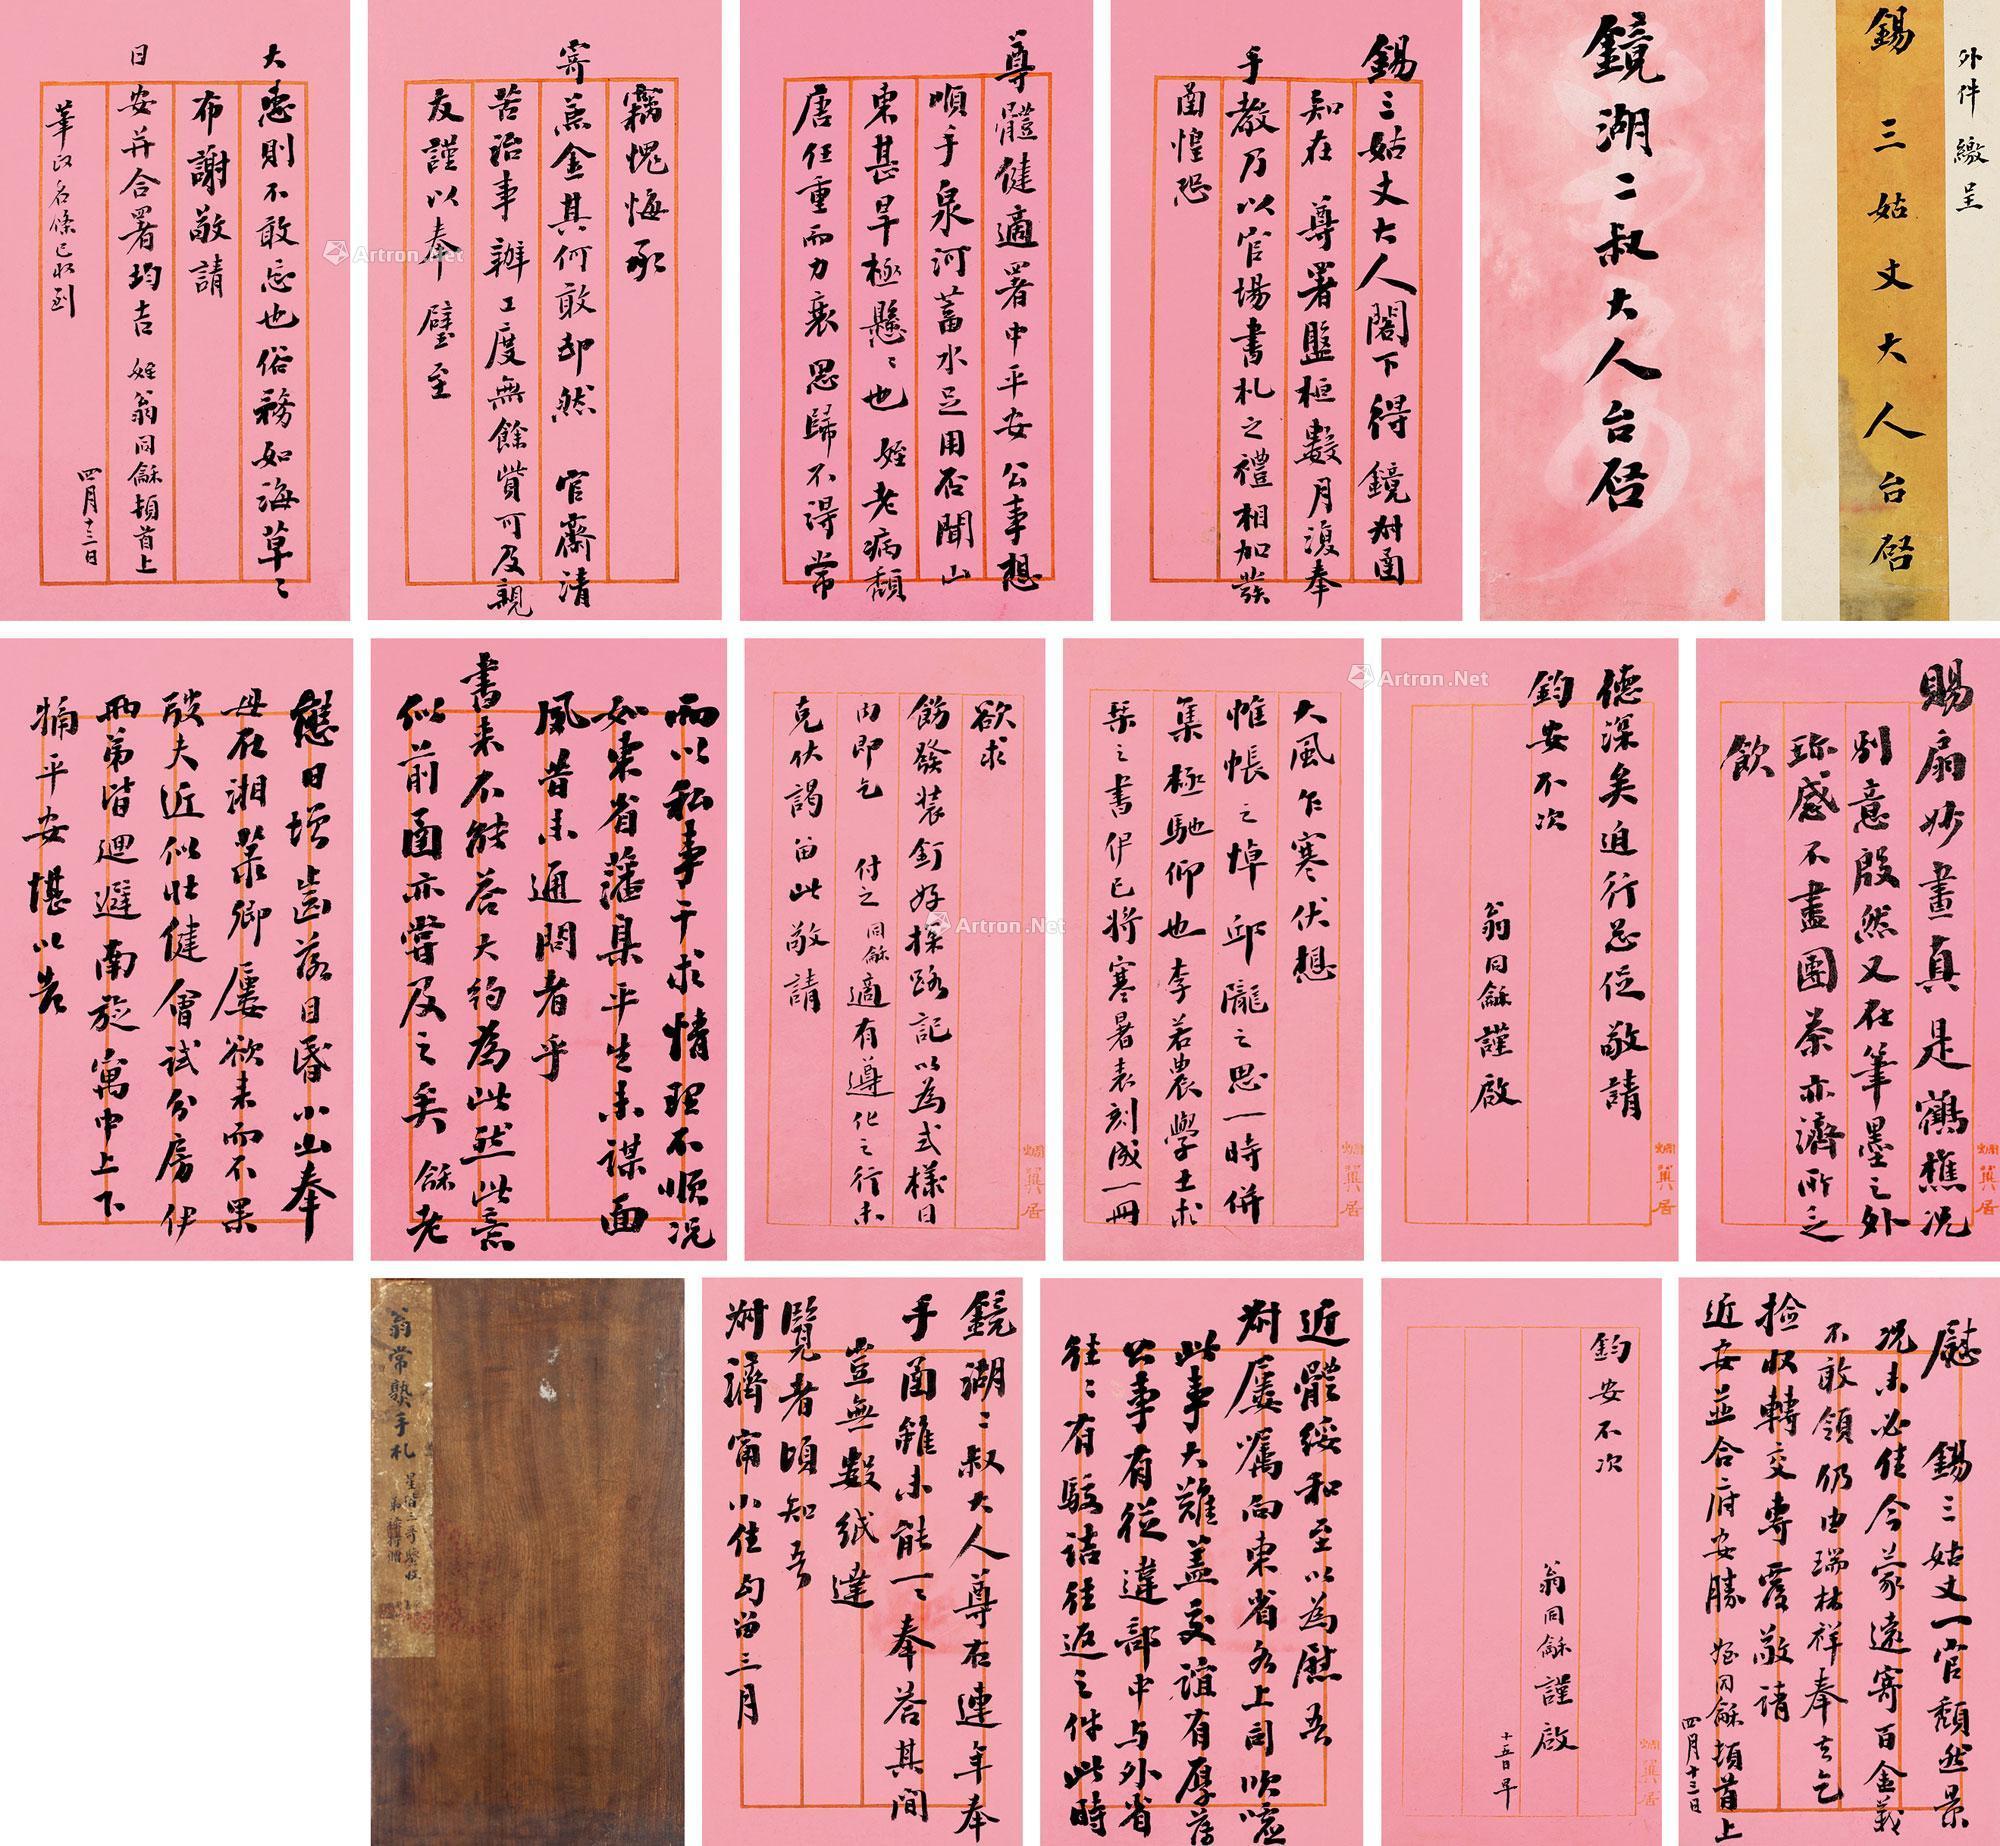 外件繳呈
錫三姑丈大人台啟
鏡湖二叔大人台啟
錫三姑丈大人閣下得 鏡叔函
知在 尊署盤桓數月複奉
手教乃以官場書札之禮相加發
函惶恐
尊體健適署中平安 公事想
順手泉河蓄水足用否聞山
東甚旱極懸々也 姪老病頹
唐任重而力衰思歸不得常
竊愧悔承
寄蕉金其何敢却然 官齋清
苦治事辦工度無餘貲可及親
友謹以奉璧至
大惠則不敢忘也俗務如海草々
布謝敬請
日安并合署均吉 姪翁同龢頓首上
四月十三日
筆政名條已收到
賜扇妙畫真是鶴樵況
刻意殷然又在筆墨之外
珍感不盡團茶亦濟所乏
飲
德深矣迫行怱促敬請
鈞安不次
翁同龢謹啟
大風乍寒伏想
帷帳之悼邱隴之思一時併
集極馳仰也李若農學士求
槩之書伊已將寒暑表刻成一冊
欲求
飭發裝釘好操路記以為式樣日
內即乞 付之同龢適有遵化之行未
克伏謁留此敬請
而以私事干求情理不順況
如東省藩臬平生未謀面
風昔未通問者乎
書来不能答大約為此然此意
似前函亦嘗及之矣 龢老
憊日增齒落目昏小山奉
母在湘菉卿屢欲来而不果
殷夫近似壯健會試分房伊
兩弟皆迴避南旋寓中上下
犕平安堪以告
慰 錫三姑丈一官頹然景
况未必佳今蒙遠寄百金義
不敢領仍由瑞林祥奉玄乞
檢收轉交專覆敬請
近安並合府安勝 姪同龢頓首上
四月十三日
鈞安不次
翁同龢謹啟
十五日早
近體綏和至以為慰吾
叔屢囑向東省各上司吹噓
此事大難蓋交誼有厚薄
公事有從違部中与外省
往々有駁詰往返之件此時
鏡湖二叔大人尊右連年奉
手函雖未能一一奉答其間
豈無數紙達
覽者頃知吾
叔濟甯小住勾留三月
翁常熟手札